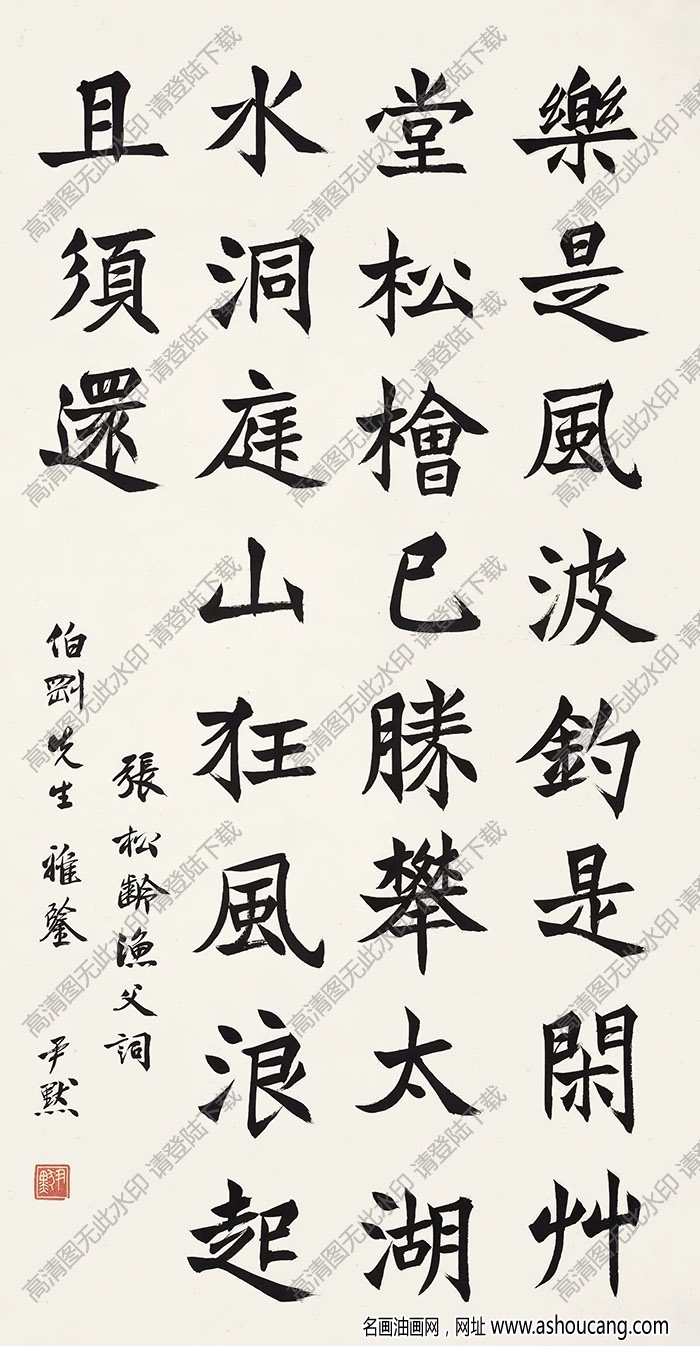 樂是風波釣是閑艸
堂松檜已勝攀太湖
水洞庭山狂風浪起
且須還
張松齡漁父詞
伯剛先生雅鑒 尹默
高清图无此水印 请登陆下载
名画油画网，网址 www.ashoucang.com